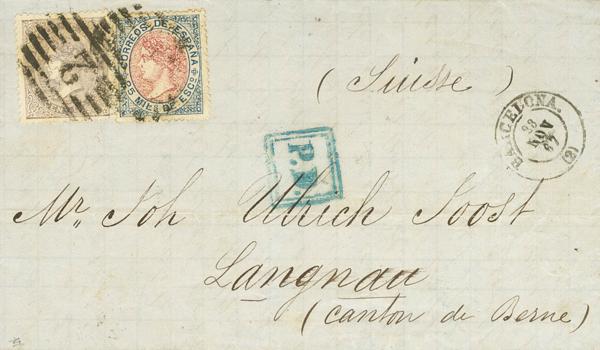 2
CORREOS DE ESPAÑA
25 MILS DE ESCO
(Suisse)
BARCELONA.
23
NOV
67
(2)
P.D.
Mr,, Joh Ulrich Joost
Langnau
(Canton de Berne)